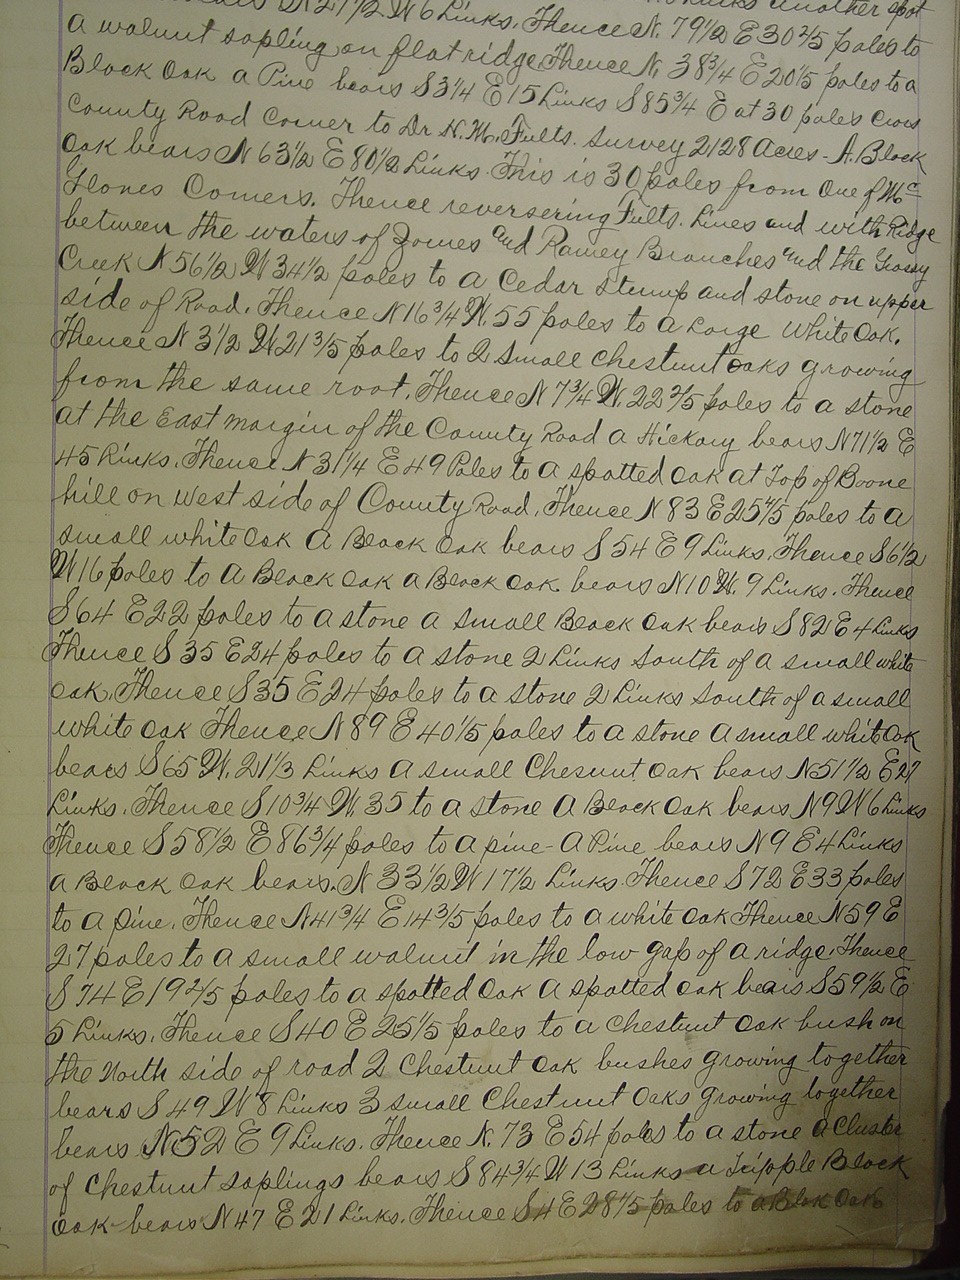 N 27 1/2 W 6 Links. Thence N. 79 1/2 E 30 2/5 poles to
a walnut sapling on flat ridge. Thence N. 38 3/4 E 20 1/5 poles to a
Black Oak a Pine bears S 3 1/4 E 15 Links S 85 3/4 E at 30 poles cross
County Road Corner to Dr H. M. Fults. survey 2128 acres - A. Black
Oak bears N 63 1/2 E 80 1/2 Links. This is 30 poles from One of Mc
Glones Corners. Thence reversering Fults. Lines and with Ridge
between the waters of Jones and Ramey Branches and the Grassy
Creek N 56 1/2 W 34 1/2 poles to a Cedar stump and stone on upper
side of Road. Thence N 16 3/4 W. 55 poles to a Large White Oak.
Thence N 3 1/2 W 21 3/5 poles to 2 small chestnut oaks growing
from the same root. Thence N 7 3/4 W. 22 2/5 poles to a stone
at the East margin of the County Road a Hickory bears N 71 1/2 E
45 Links. Thence N 31 1/4 E 49 Poles to a spotted oak at Top of Boone
hill on west side of County Road. Thence N 83 E 25 4/5 poles to a
small white Oak a Black Oak bears S 54 E 9 Links. Thence S 6 1/2
W 16 poles to a Black Oak a Black Oak bears N 10 W. 9 Links. Thence
S 64 E 22 poles to a stone a small Black Oak bears S 82 E 4 Links
Thence S 35 E 24 poles to a stone 2 Links South of a small white
oak. Thence S 35 E 24 poles to a stone 2 Links South of a small
white oak Thence N 89 E 40 1/5 poles to a stone a small white oak
bears S 65 W. 21 1/3 Links a small Chesnut Oak bears N 51 1/2 E 27
Links. Thence S 10 3/4 W. 35 to a stone a Black Oak bears N 9 W 6 Links
Thence S 58 1/2 E 86 3/4 poles to a pine - a Pine bears N 9 E 4 Links
a Black Oak bears. N 33 1/2 W 17 1/2 Links. Thence S 72 E 33 poles
to a pine. Thence N. 41 3/4 E 14 3/5 poles to a white oak Thence N 59 E
27 poles to a small walnut in the low gap of a ridge. Thence
S 74 E 19 2/5 poles to a spotted Oak a spotted oak bears S 59 1/2 E
5 Links. Thence S 40 E 25 1/5 poles to a Chestnut Oak bush on
the North side of road 2 Chestnut Oak bushes growing together
bears S 49 W 8 Links 3 small Chestnut Oaks growing together
bears N 52 E 9 Links. Thence N. 73 E 54 poles to a stone a Cluster
of Chestnut saplings bears S 84 3/4 W 13 Links a Tripple Black
oak bears N 47 E 21 Links. Thence S 4 E 28 1/5 poles to a Blak Oak